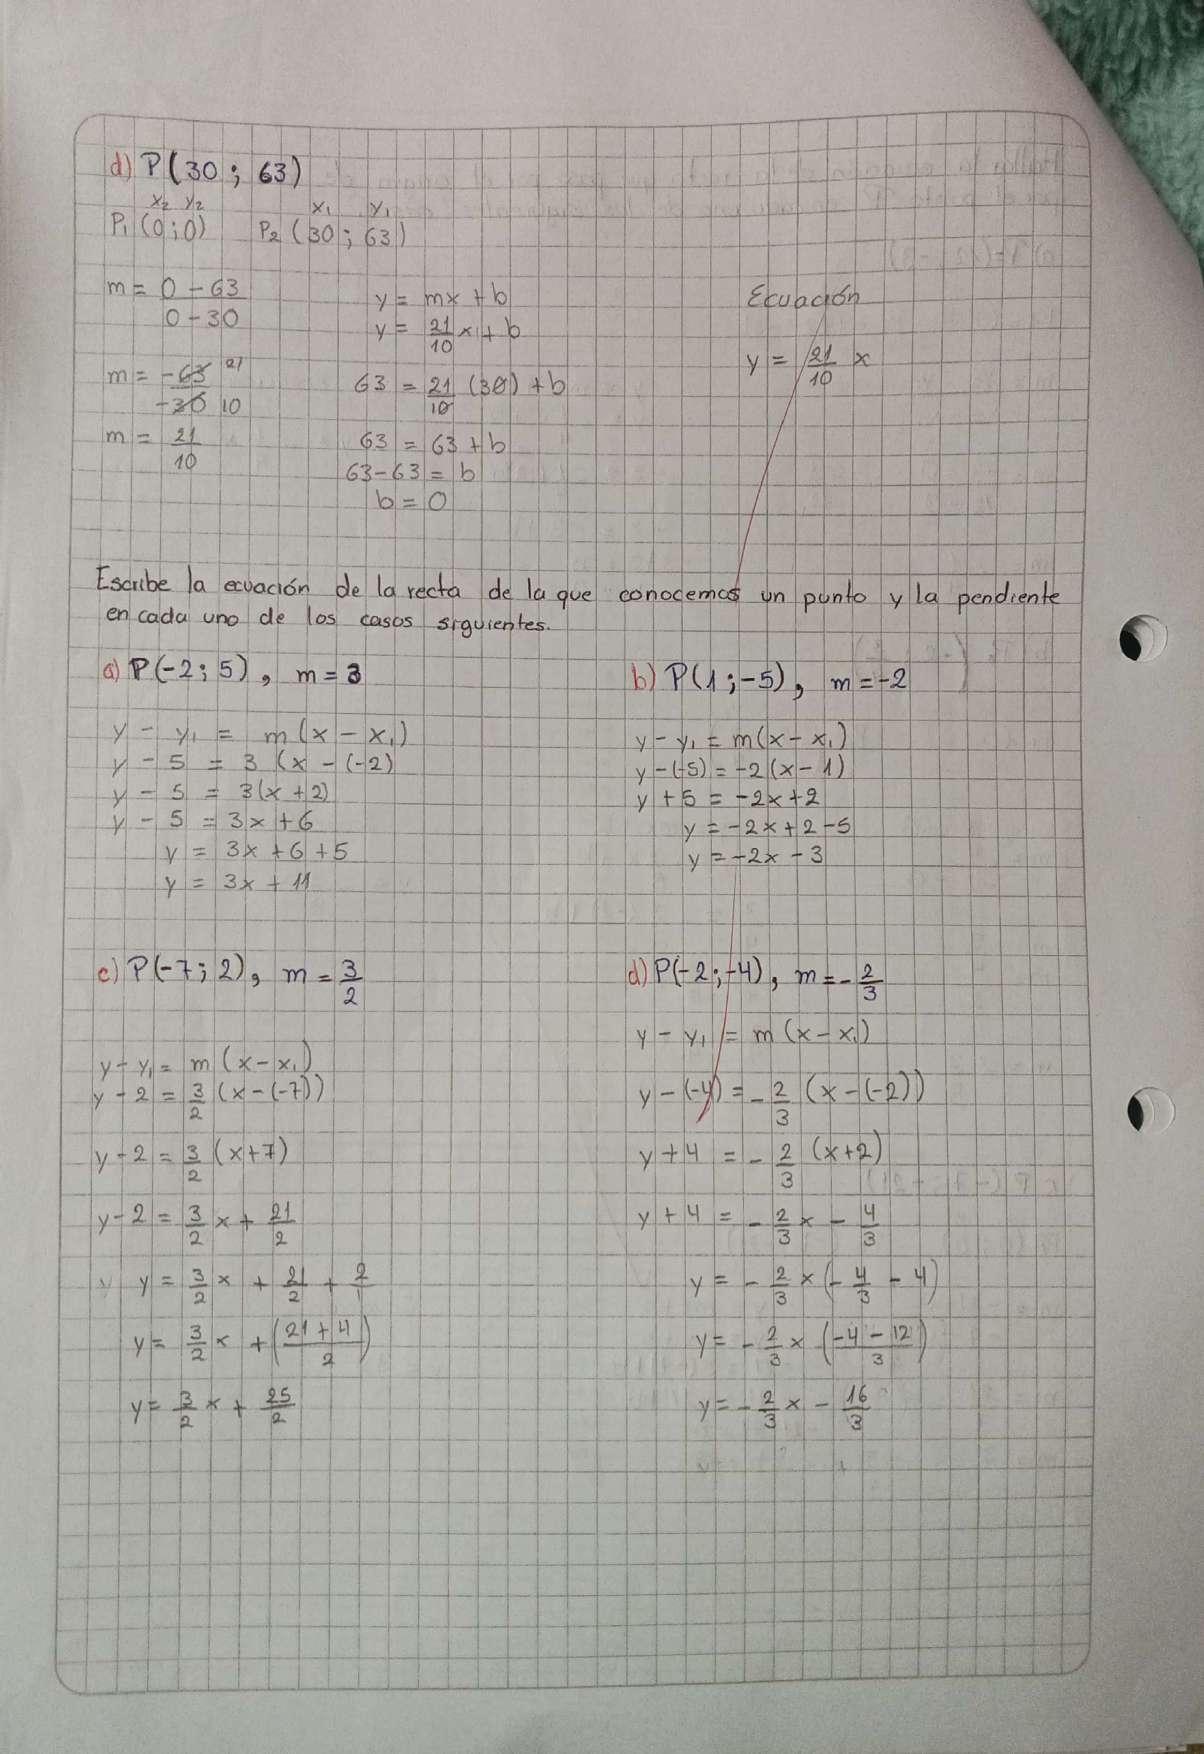 d) P(30 ; 63)
x₂ y₂ x₁ y₁
P₁ (0 ; 0) P₂ (30 ; 63)
m = 0 - 63 / 0 - 30
m = -63 21 / -30 10
m = 21/10
y = mx + b
y = 21/10 x + b
63 = 21/10 (30) + b
63 = 63 + b
63 - 63 = b
b = 0
Ecuación
y = 21/10 x
Escribe la ecuación de la recta de la que conocemos un punto y la pendiente
en cada uno de los casos siguientes.
a) P(-2 ; 5) , m = 3
y - y₁ = m (x - x₁)
y - 5 = 3 (x - (-2)
y - 5 = 3(x + 2)
y - 5 = 3x + 6
y = 3x + 6 + 5
y = 3x + 11
b) P(1 ; -5) , m = -2
y - y₁ = m(x - x₁)
y - (-5) = -2(x - 1)
y + 5 = -2x + 2
y = -2x + 2 - 5
y = -2x - 3
c) P(-7 ; 2) , m = 3/2
y - y₁ = m (x - x₁)
y - 2 = 3/2 (x - (-7))
y - 2 = 3/2 (x + 7)
y - 2 = 3/2 x + 21/2
y = 3/2 x + 21/2 + 2/1
y = 3/2 x + (21 + 4 / 2)
y = 3/2 x + 25/2
d) P(-2 ; -4) , m = - 2/3
y - y₁ = m (x - x₁)
y - (-4) = - 2/3 (x - (-2))
y + 4 = - 2/3 (x + 2)
y + 4 = - 2/3 x - 4/3
y = - 2/3 x (- 4/3 - 4)
y = - 2/3 x (-4 - 12 / 3)
y = - 2/3 x - 16/3